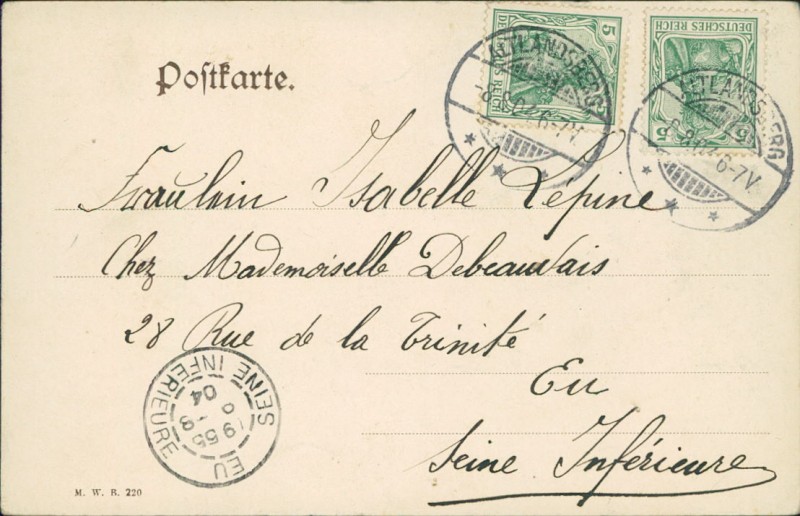 Postkarte.
5
DEUTSCHES REICH
DEUTSCHES REICH
5
ALTLANDSBERG
6-7V.
ALTLANDSBERG
6-7V.
Fräulein Isabelle Lépine
Chez Mademoiselle Debeauvais
28 Rue de la Trinité
Eu
Seine Inférieure
EU
SEINE INFERIEURE
04
M. W. B. 220